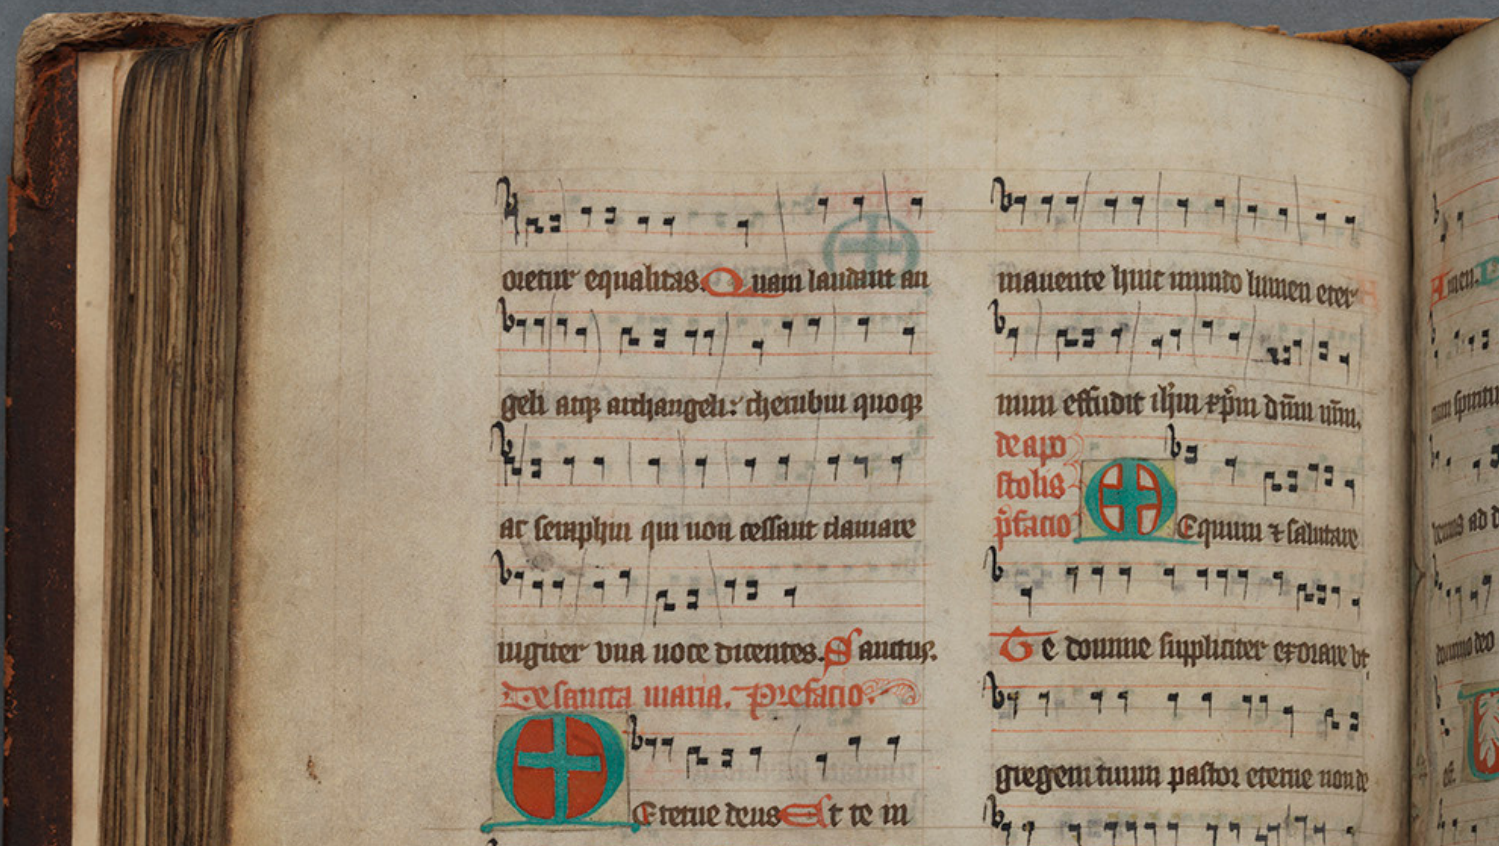 oretur equalitas. Quam laudant an
geli atqꝫ archangeli: cherubin quoqꝫ
ac seraphin qui non cessant clamare
iugiter vna uoce dicentes. Sanctus.
De sancta maria. Prefacio.
Eterne deus Et te in
manente huic mundo lumen eter
num effudit ihm xpm dnm nrm.
de apo
stolis
pfacio
Equum ⁊ salutare
Te domine suppliciter exorare vt
gregem tuum pastor eterne non de
Amen.